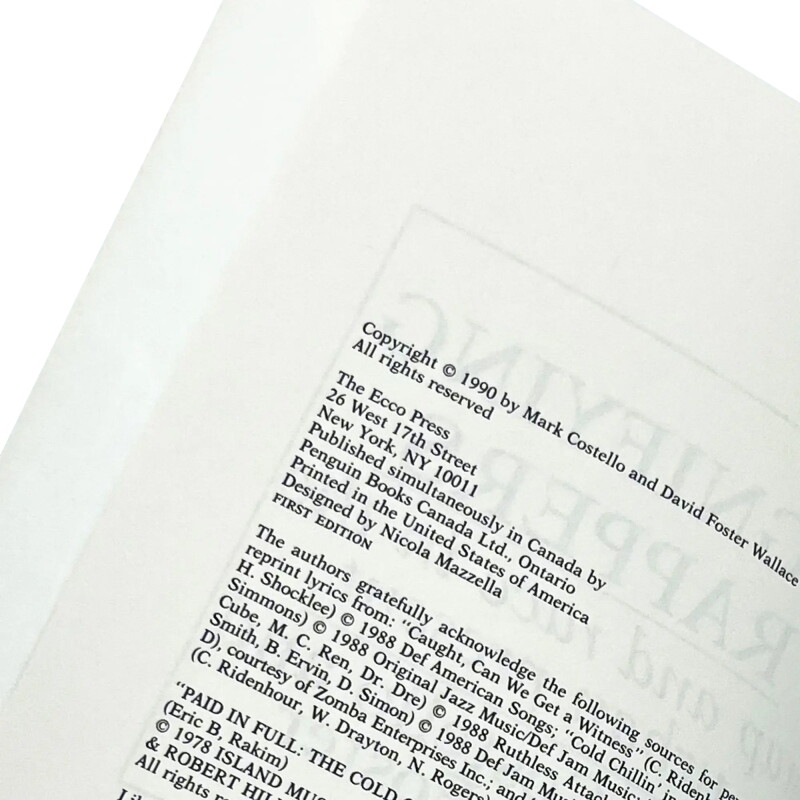 Copyright © 1990 by Mark Costello and David Foster Wallace
All rights reserved
The Ecco Press
26 West 17th Street
New York, NY 10011
Published simultaneously in Canada by
Penguin Books Canada Ltd., Ontario
Printed in the United States of America
Designed by Nicola Mazzella
FIRST EDITION
The authors gratefully acknowledge the following sources for pe
reprint lyrics from: "Caught, Can We Get a Witness" (C. Rident
H. Shocklee) © 1988 Def American Songs; "Cold Chillin' in
Simmons) © 1988 Original Jazz Music/Def Jam Music;
Cube, M. C. Ren, Dr. Dre) © 1988 Ruthless Attack
Smith, B. Ervin, D. Simon) © 1988 Def Jam Mu
D), courtesy of Zomba Enterprises Inc.; and
(C. Ridenhour, W. Drayton, N. Rogers)
"PAID IN FULL: THE COLD
(Eric B, Rakim)
© 1978 ISLAND MUS
& ROBERT HIL
All rights re